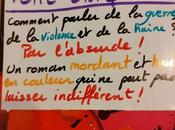 Comment parler de la guerre
de la violence et de la haine ?
Par l'absurde !
Un roman mordant et haut
en couleur qui ne peut pas
laisser indifférent !